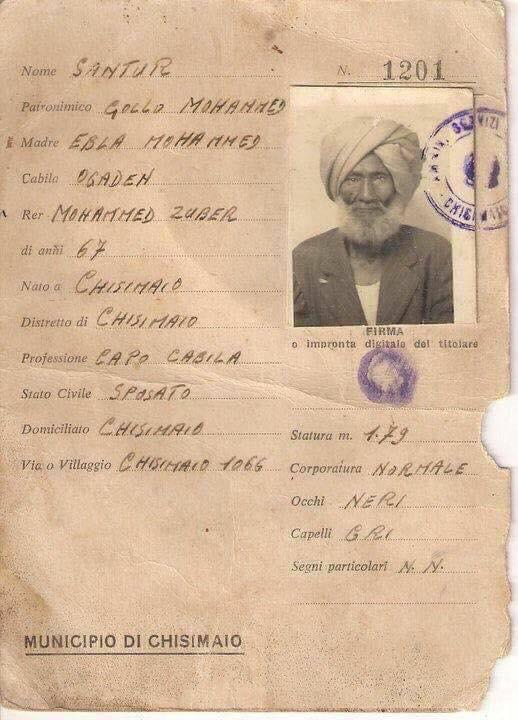 Nome SANTUR
N. 1201
Patronimico GOLLO MOHAMMED
Madre EBLA MOHAMMED
Cabila OGADEN
Rer MOHAMMED ZUBER
di anni 67
Nato a CHISIMAIO
Distretto di CHISIMAIO
Professione CAPO CABILA
Stato Civile SPOSATO
Domiciliato CHISIMAIO
Via o Villaggio CHISIMAIO 1066
SERVIZI
FIRMA
o impronta digitale del titolare
Statura m. 1.79
Corporatura NORMALE
Occhi NERI
Capelli GRI
Segni particolari N. N.
MUNICIPIO DI CHISIMAIO